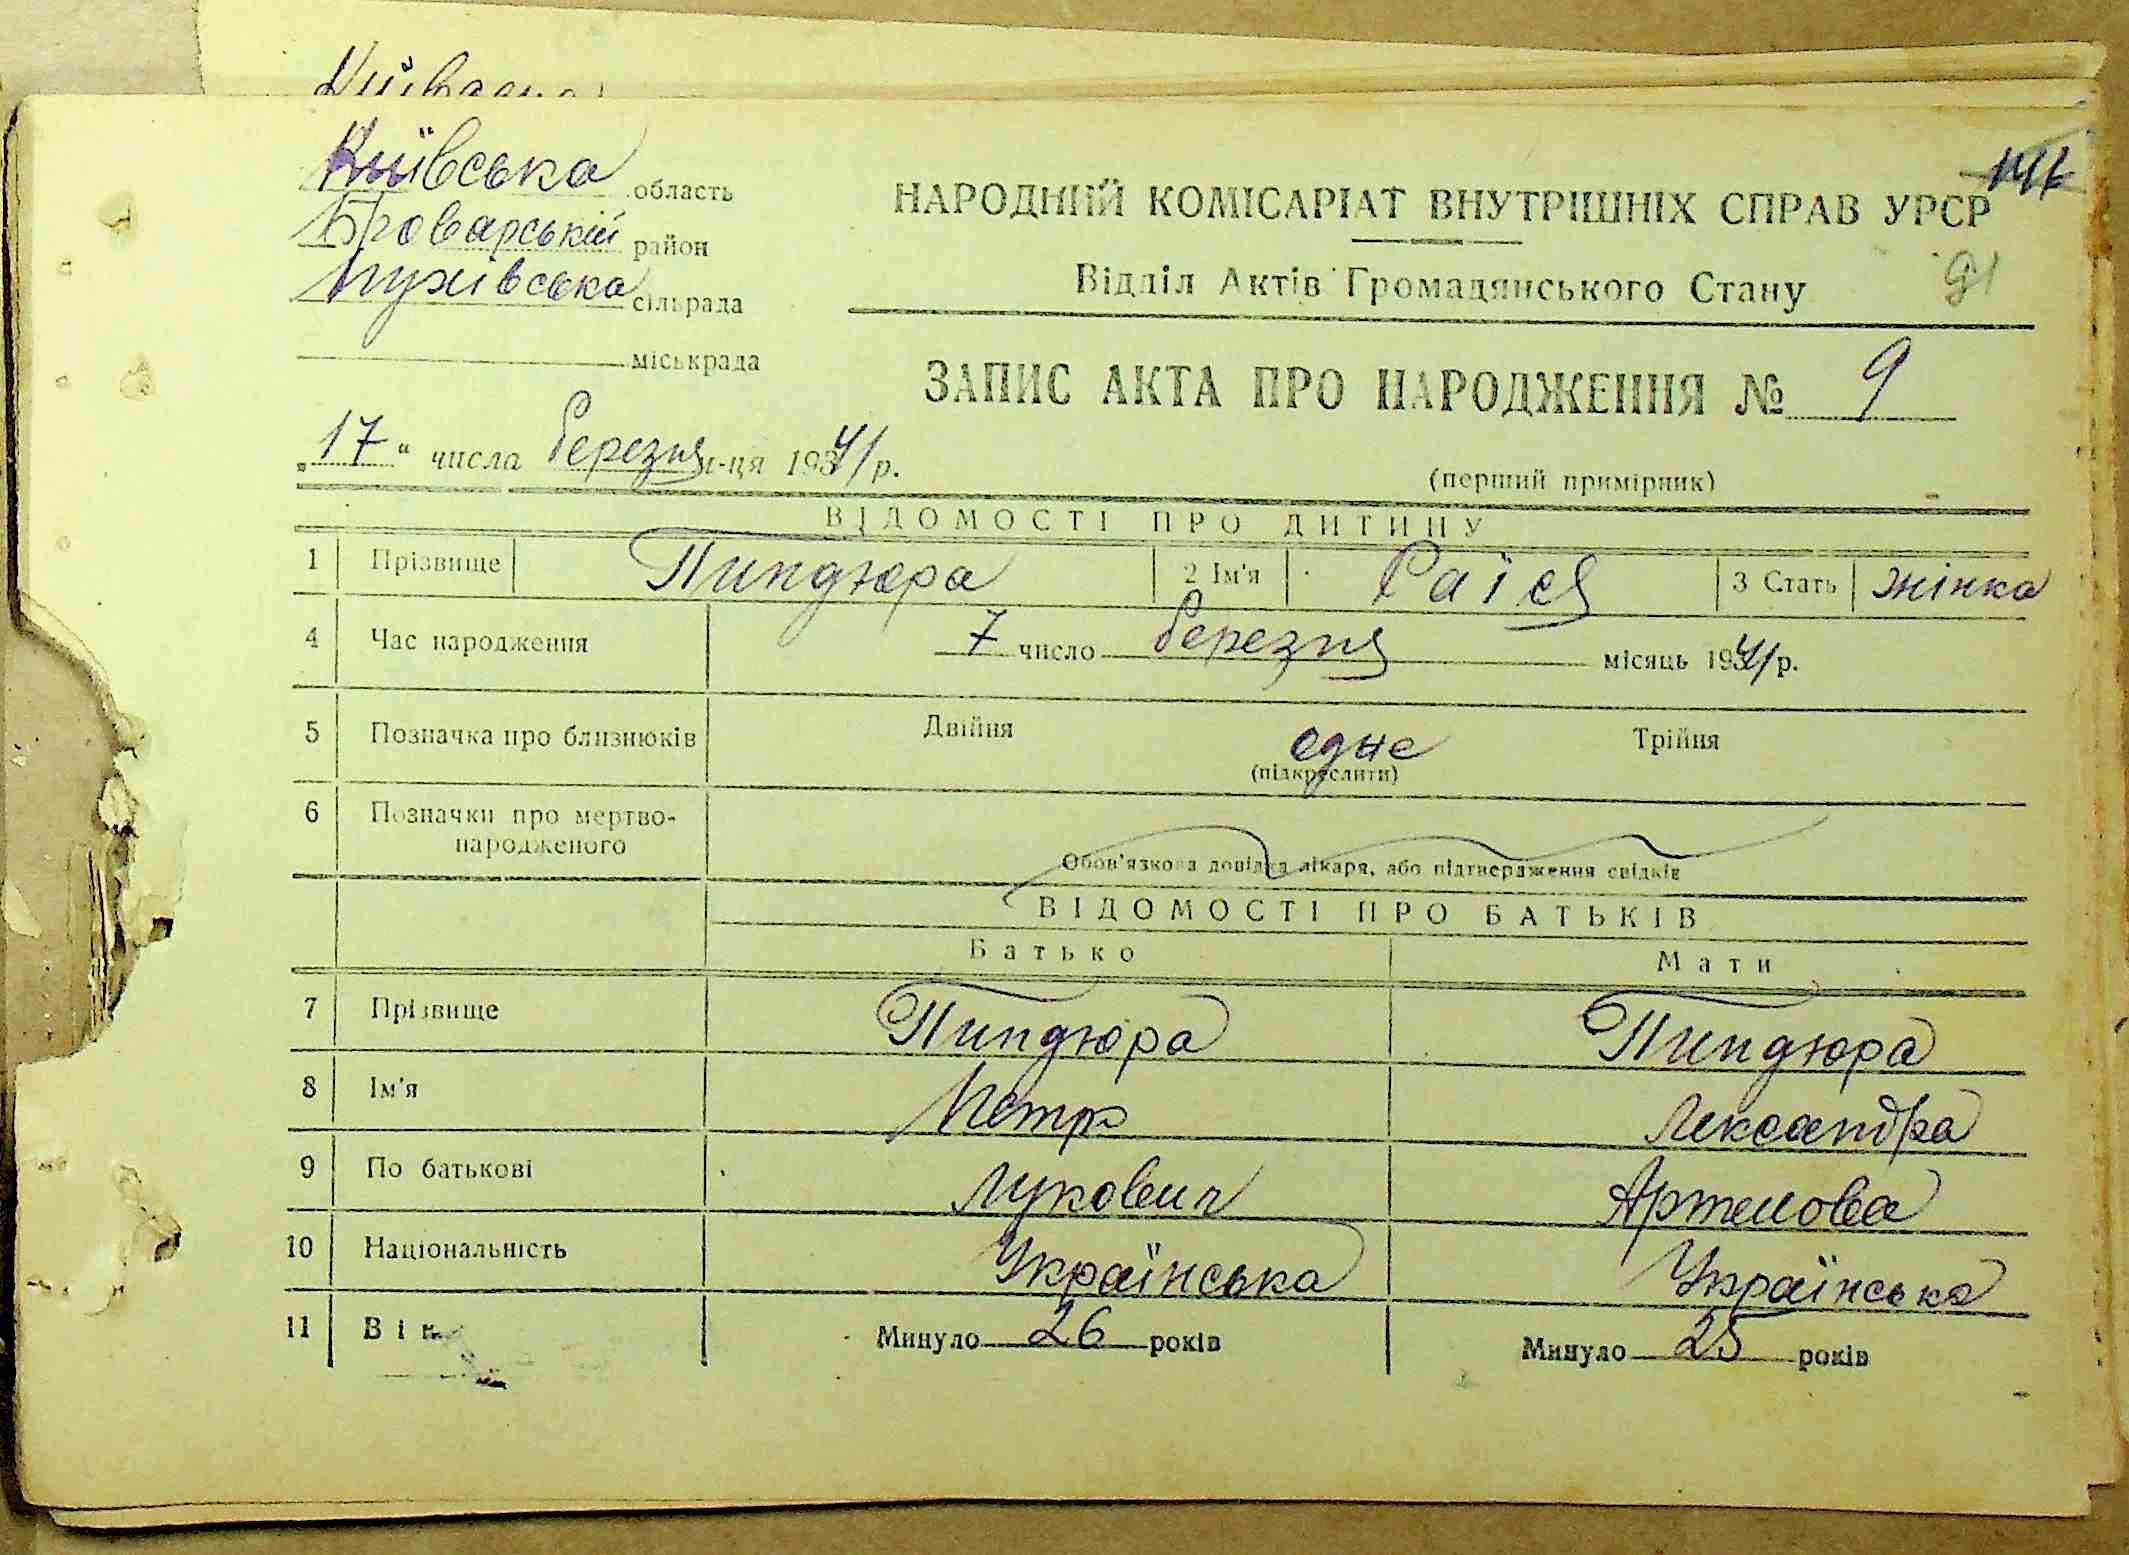 Київська область
Броварській район
Пухівська сільрада
міськрада
НАРОДНИЙ КОМІСАРІАТ ВНУТРІШНІХ СПРАВ УРСР
Відділ Актів Громадянського Стану
91
ЗАПИС АКТА ПРО НАРОДЖЕННЯ № 9
„17“ числа березня м-ця 1941 р.
(перший примірник)
ВІДОМОСТІ ПРО ДИТИНУ
1 Прізвище Пиндюра 2 Ім'я Раїся 3 Стать жінка
4 Час народження 7 число березня місяць 1941 р.
5 Позначка про близнюків Двійня одне Трійня
(підкреслити)
6 Позначки про мертво-
народженого
Обов'язкова довідка лікаря, або підтвердження свідків
ВІДОМОСТІ ПРО БАТЬКІВ
Батько Мати
7 Прізвище Пиндюра Пиндюра
8 Ім'я Петр Лександра
9 По батькові Лукович Артемова
10 Національність Українська Українська
11 Вік Минуло 26 років Минуло 25 років